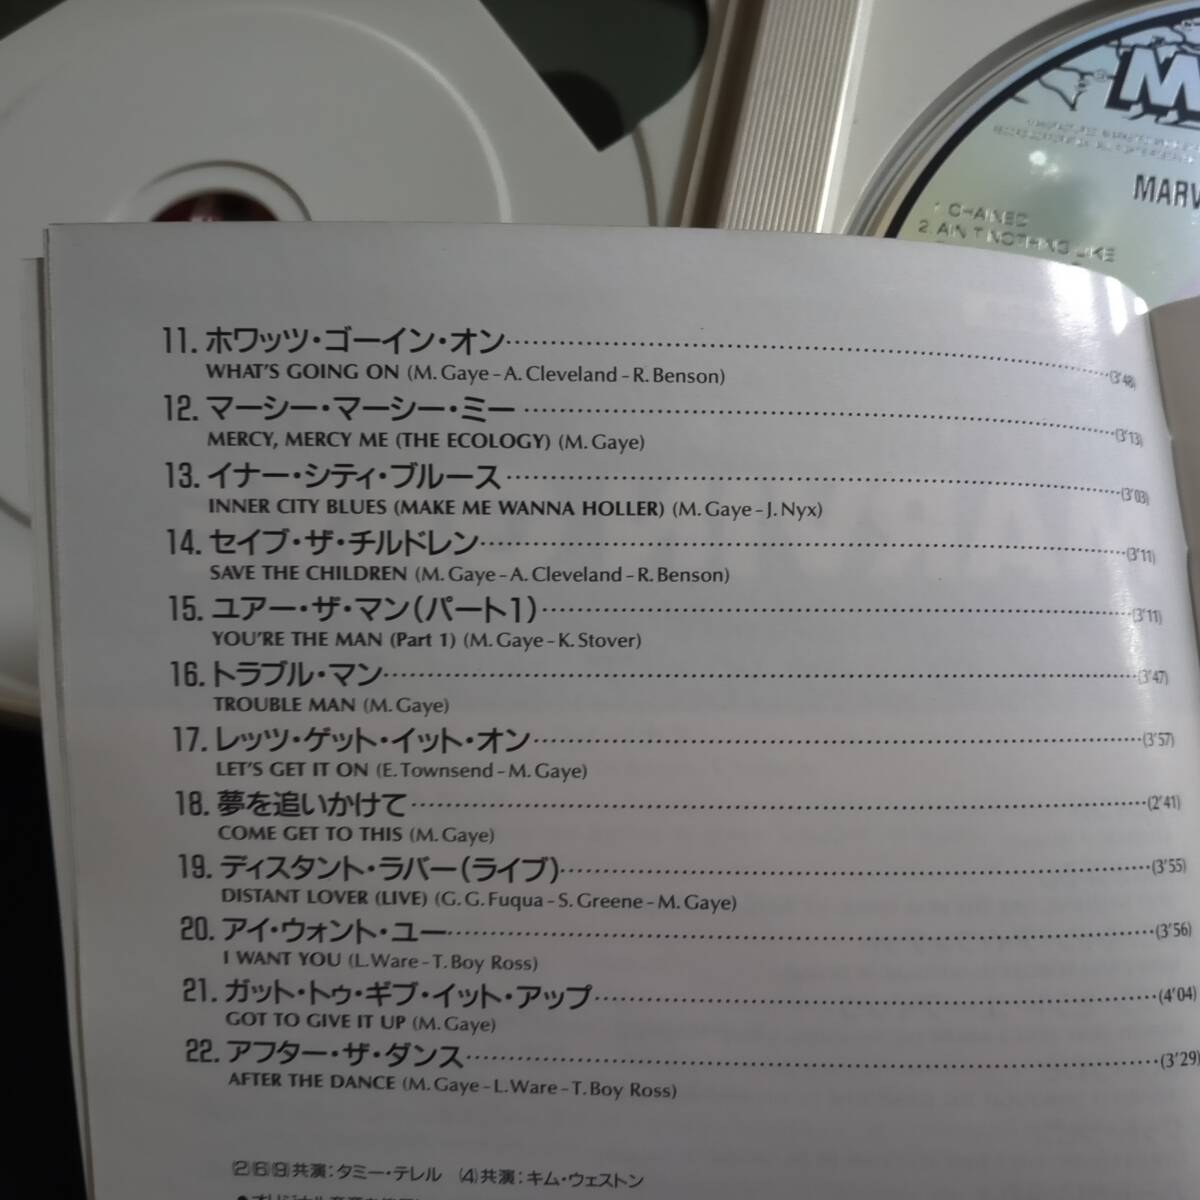 MARV
1. CHAINED
2. AIN'T NOTHING LIKE
11. ホワッツ・ゴーイン・オン (3'48)
WHAT'S GOING ON (M. Gaye – A. Cleveland – R. Benson)
12. マーシー・マーシー・ミー (3'13)
MERCY, MERCY ME (THE ECOLOGY) (M. Gaye)
13. イナー・シティ・ブルース (3'03)
INNER CITY BLUES (MAKE ME WANNA HOLLER) (M. Gaye – J. Nyx)
14. セイブ・ザ・チルドレン (3'11)
SAVE THE CHILDREN (M. Gaye – A. Cleveland – R. Benson)
15. ユアー・ザ・マン(パート1) (3'11)
YOU'RE THE MAN (Part 1) (M. Gaye – K. Stover)
16. トラブル・マン (3'47)
TROUBLE MAN (M. Gaye)
17. レッツ・ゲット・イット・オン (3'57)
LET'S GET IT ON (E. Townsend – M. Gaye)
18. 夢を追いかけて (2'41)
COME GET TO THIS (M. Gaye)
19. ディスタント・ラバー(ライブ) (3'55)
DISTANT LOVER (LIVE) (G. G. Fuqua – S. Greene – M. Gaye)
20. アイ・ウォント・ユー (3'56)
I WANT YOU (L. Ware – T. Boy Ross)
21. ガット・トゥ・ギブ・イット・アップ (4'04)
GOT TO GIVE IT UP (M. Gaye)
22. アフター・ザ・ダンス (3'29)
AFTER THE DANCE (M. Gaye – L. Ware – T. Boy Ross)
(2)(6)(9)共演:タミー・テレル (4)共演:キム・ウェストン